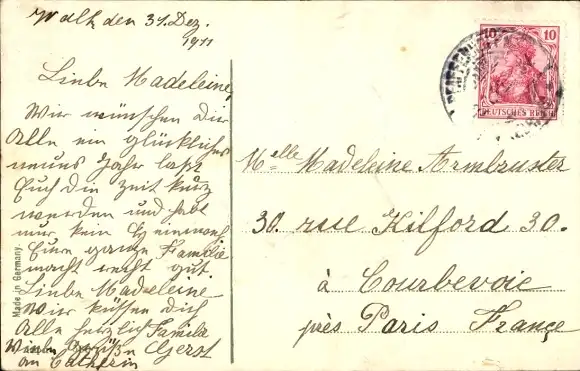 Walk, den 31. Dez.
1911
Liebe Madeleine,
Wir wünschen Dir
Alle ein glückliches
neues Jahr laßt
Euch die zeit kurz
werden und habt
nur kein Heimweh
Eure ganze Familie
macht recht gut
Liebe Madeleine
Wir küssen dich
Alle herzlich Familie
Gerst
an Catherin
Made in Germany.
10 10
DEUTSCHES REICH
Melle Madeleine Armbruster
30. rue Kilford 30.
à Courbevoie
près Paris France